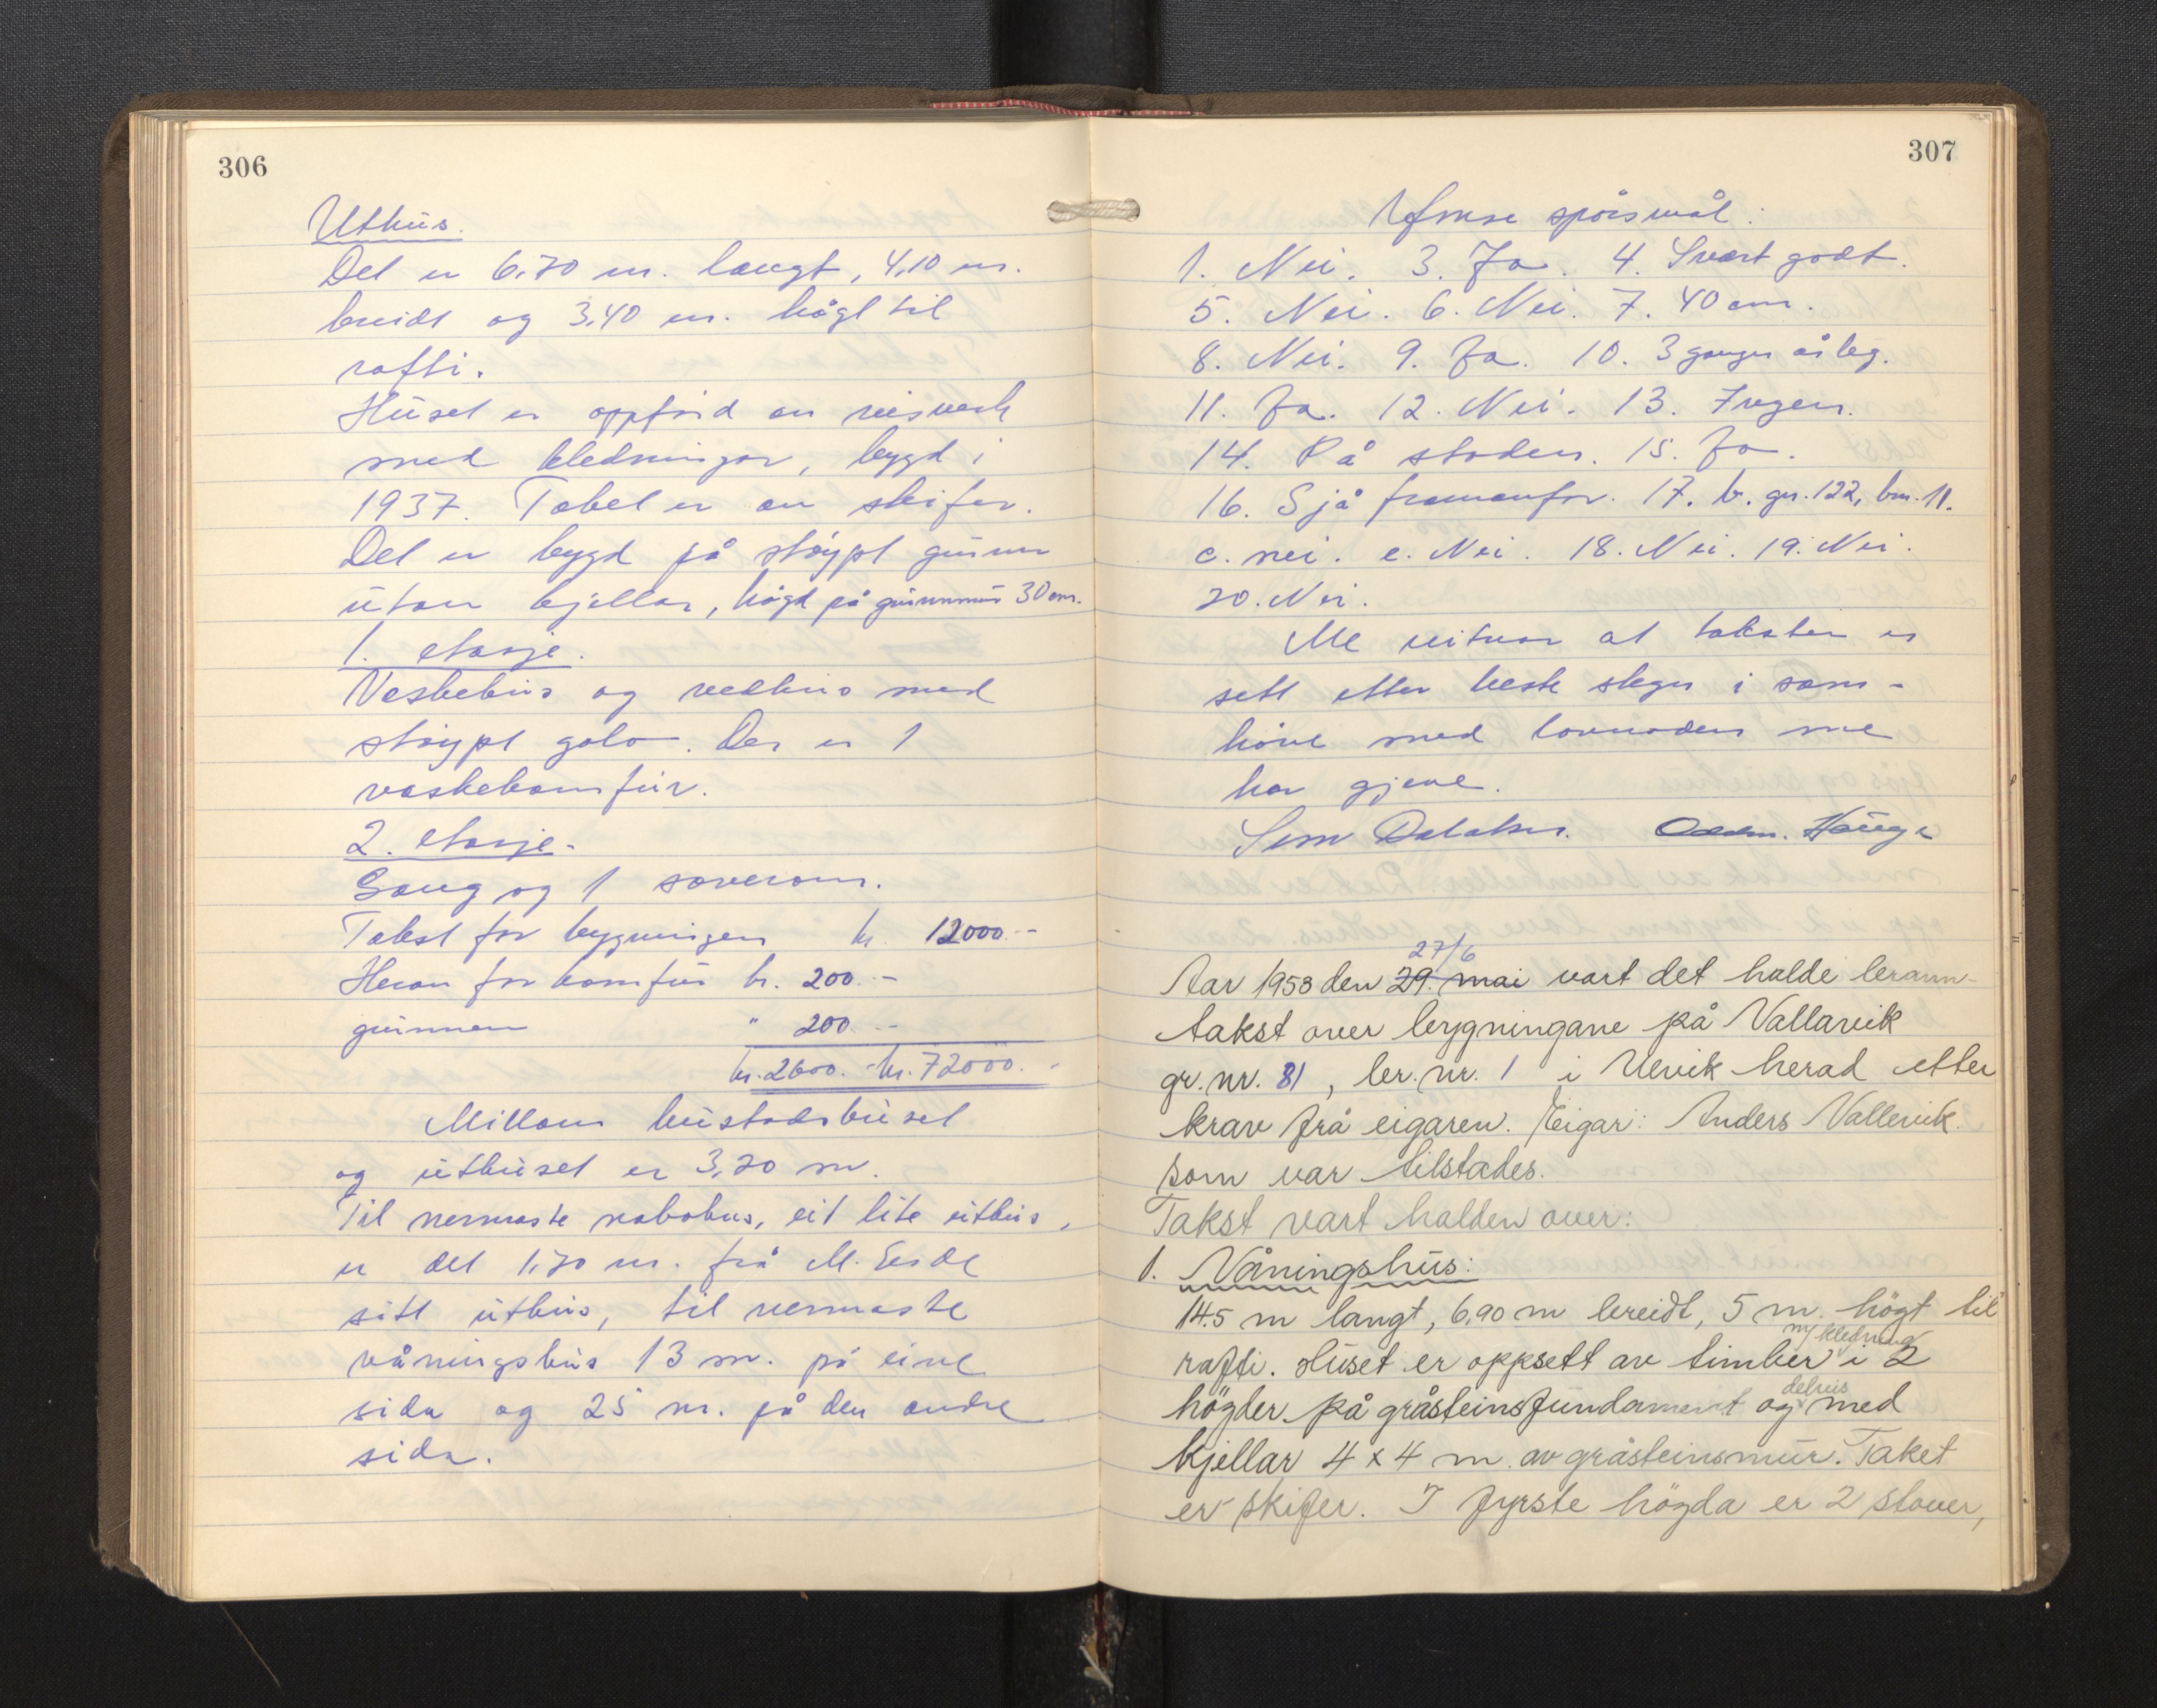 306
Uthus.
Det er 6,70 m. langt, 4,10 m.
breidt og 3,40 m. högt til
rafti.
Huset er oppförd av reisverk
med kledningar, bygd i
1937. Taket er av skifer.
Det er bygd på stöypt grunn
utan kjellar, högd på grunnmur 30 cm.
1. etasje.
Vaskehus og vedhus med
stöypt golv. Der er 1
vaskekomfur.
2. etasje.
Gang og 1 soverom.
Takst for bygningen kr. 12000.-
Herav for komfur kr. 200.-
grunnen " 200.-
kr. 2600.- kr. 72000.-
Millom bustadshuset
og uthuset er 3,20 m.
Til nermaste nabohus, eit lite uthus,
er det 1,70 m. frå M.
sitt uthus, til nermaste
våningshus 13 m. på eine
sida og 25 m. på den andre
sida.
307
Ymse spörsmål:
1. Nei. 3. Ja. 4. Svært godt.
5. Nei. 6. Nei. 7. 40 cm.
8. Nei. 9. Ja. 10. 3 gonger årleg.
11. Ja. 12. Nei. 13. Ingen.
14. På staden. 15. Ja.
16. Sjå framanfor. 17. b. gr. 122, bn. 11.
c. nei. e. Nei. 18. Nei. 19. Nei.
20. Nei.
Me vitnar at taksten er
sett etter beste skjøn i sam-
höve med lovnaden me
har gjeve.
Hauge
27/6
Aar 1953 den 29. mai vart det halde brann-
takst over bygningane på Vallavik
gr. nr. 81, br. nr. 1 i Ulvik herad etter
krav frå eigaren. Eigar: Anders Vallevik
som var tilstades.
Takst vart halden over:
1. Våningshus:
14.5 m langt, 6,90 m breidt, 5 m. högt til
rafti. Huset er oppsett av timber m/kledning i 2
högder på gråsteinsfundament og delvis med
kjellar 4 x 4 m. av gråsteinsmur. Taket
er skifer. I fyrste högda er 2 stover,